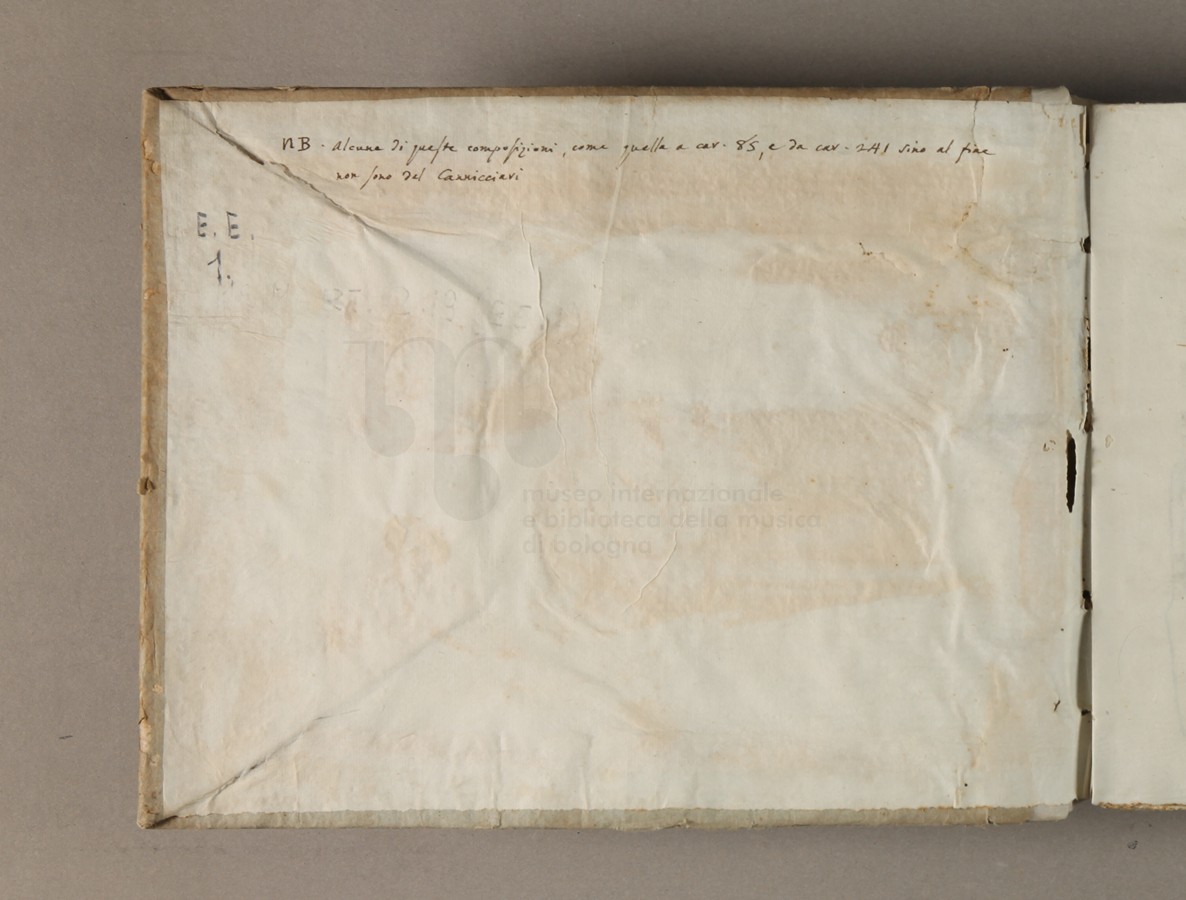 NB. alcune di queste composizioni, come quella a car. 85, e da car. 241 sino al fine
non sono del Cannicciari
E. E.
1.
museo internazionale
e biblioteca della musica
di bologna